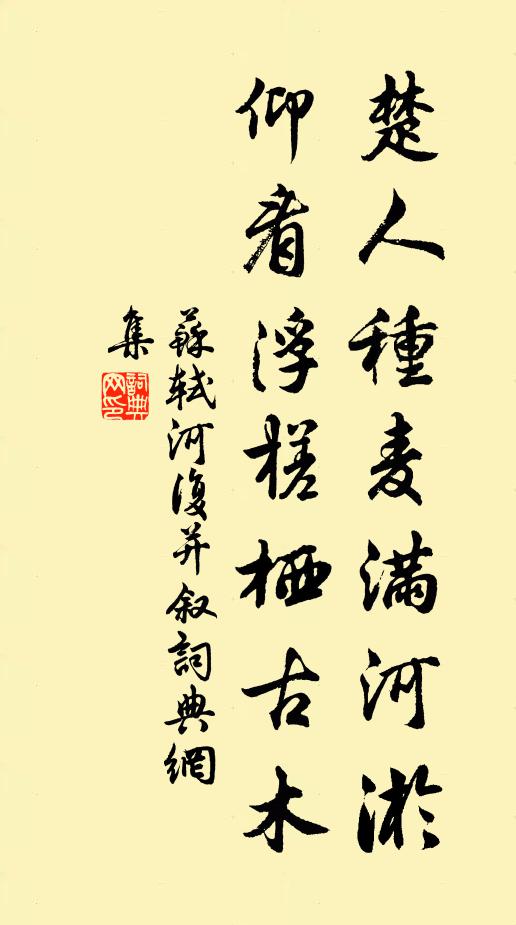 楚人種麦滿河淤
仰看浮槎栖古木
蘇軾河復并叙詞典網
集
詞典
网印